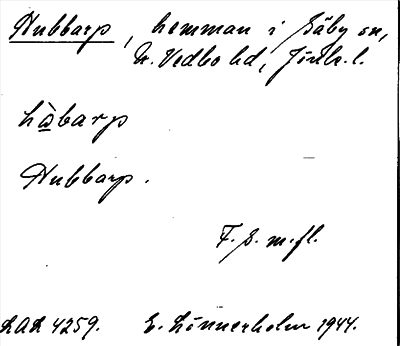 Hubbarp, hemman i Säby sn,
N. Vedbo hd, Jönk. l.
hàbarp
Hubbarp.
F. S. m.fl.
LAL 4259. E. Lönnerholm 1944.